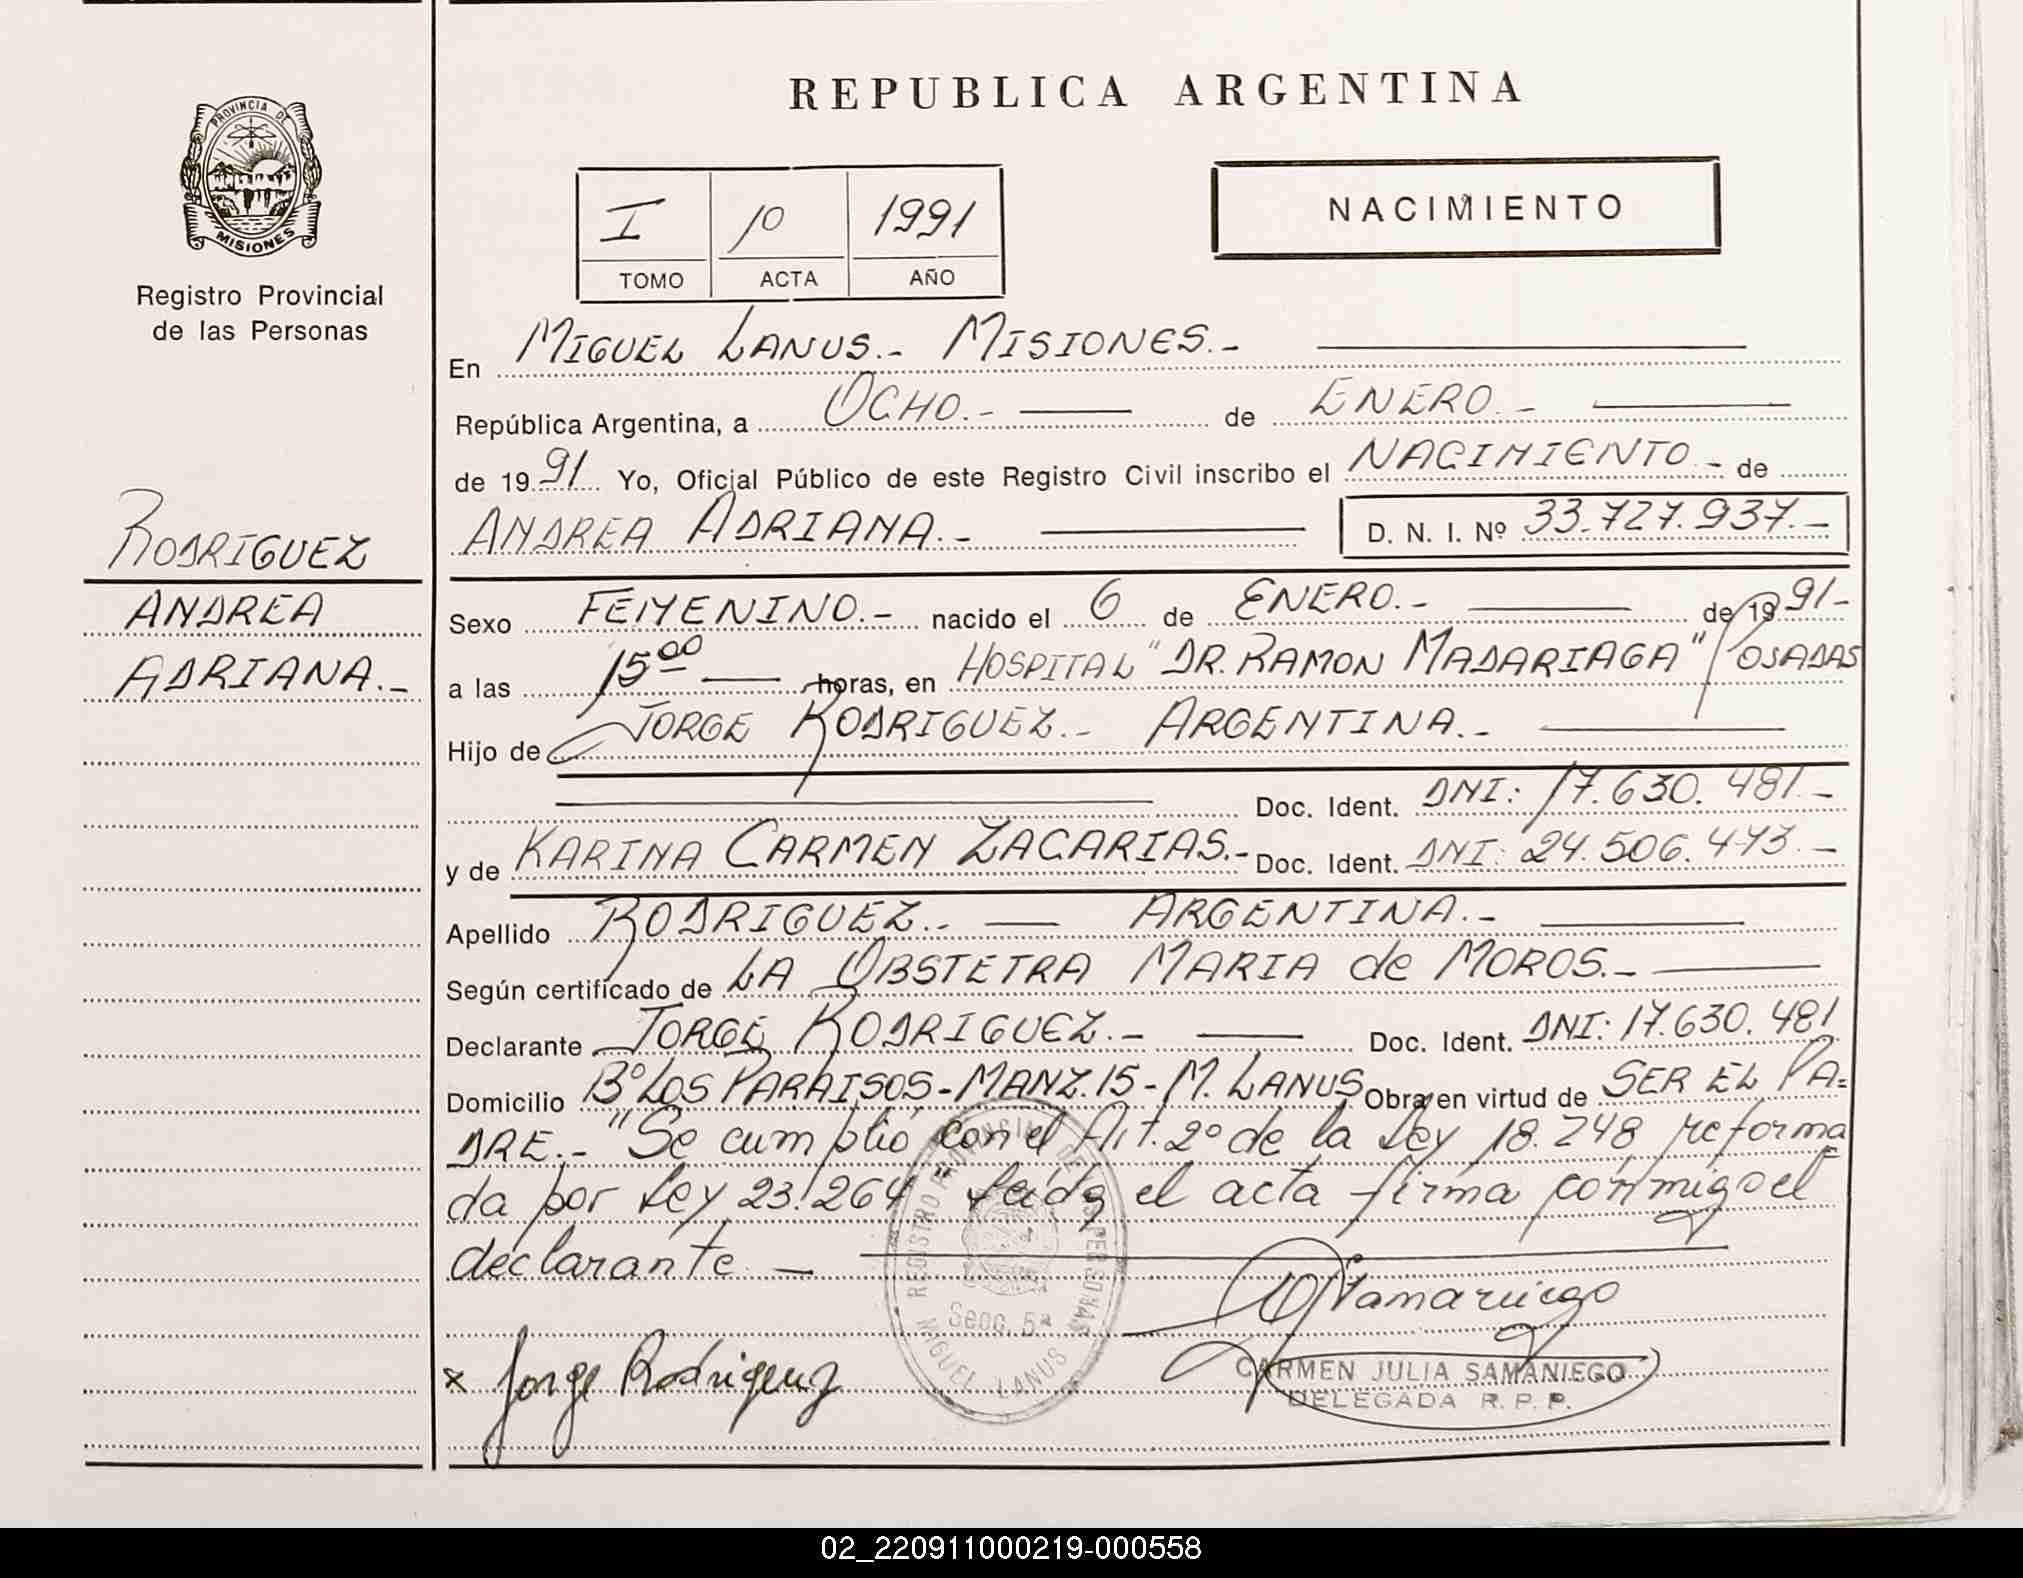 REPUBLICA ARGENTINA
PROVINCIA DE
MISIONES
Registro Provincial
de las Personas
NACIMIENTO
I 10 1991
TOMO ACTA AÑO
En MIGUEL LANUS.- MISIONES.-
República Argentina, a OCHO.- de ENERO.-
de 1991 Yo, Oficial Público de este Registro Civil inscribo el NACIMIENTO - de
ANDREA ADRIANA.- D. N. I. Nº 33.727.937.-
RODRIGUEZ
ANDREA
ADRIANA.-
Sexo FEMENINO.- nacido el 6 de ENERO.- de 1991-
a las 15 00 horas, en HOSPITAL "DR. RAMON MADARIAGA" POSADAS
Hijo de JORGE RODRIGUEZ.- ARGENTINA.-
Doc. Ident. DNI: 17.630.481.-
y de KARINA CARMEN ZACARIAS.- Doc. Ident. DNI: 24.506.473.-
Apellido RODRIGUEZ.- ARGENTINA.-
Según certificado de LA OBSTETRA MARIA de MOROS.-
Declarante JORGE RODRIGUEZ.- Doc. Ident. DNI: 17.630.481
Domicilio Bº LOS PARAISOS - MANZ. 15 - M. LANUS Obra en virtud de SER EL PA=
DRE.- "Se cumplió con el Art. 2º de la Ley 18.248 reforma=
da por Ley 23.264" Leída el acta firma conmigo el
declarante -
REGISTRO PROVINCIAL DE LAS PERSONAS
Secc. 5ª
MIGUEL LANUS
Samaniego
x Jorge Rodriguez
CARMEN JULIA SAMANIEGO
DELEGADA R. P. P.
02_220911000219-000558